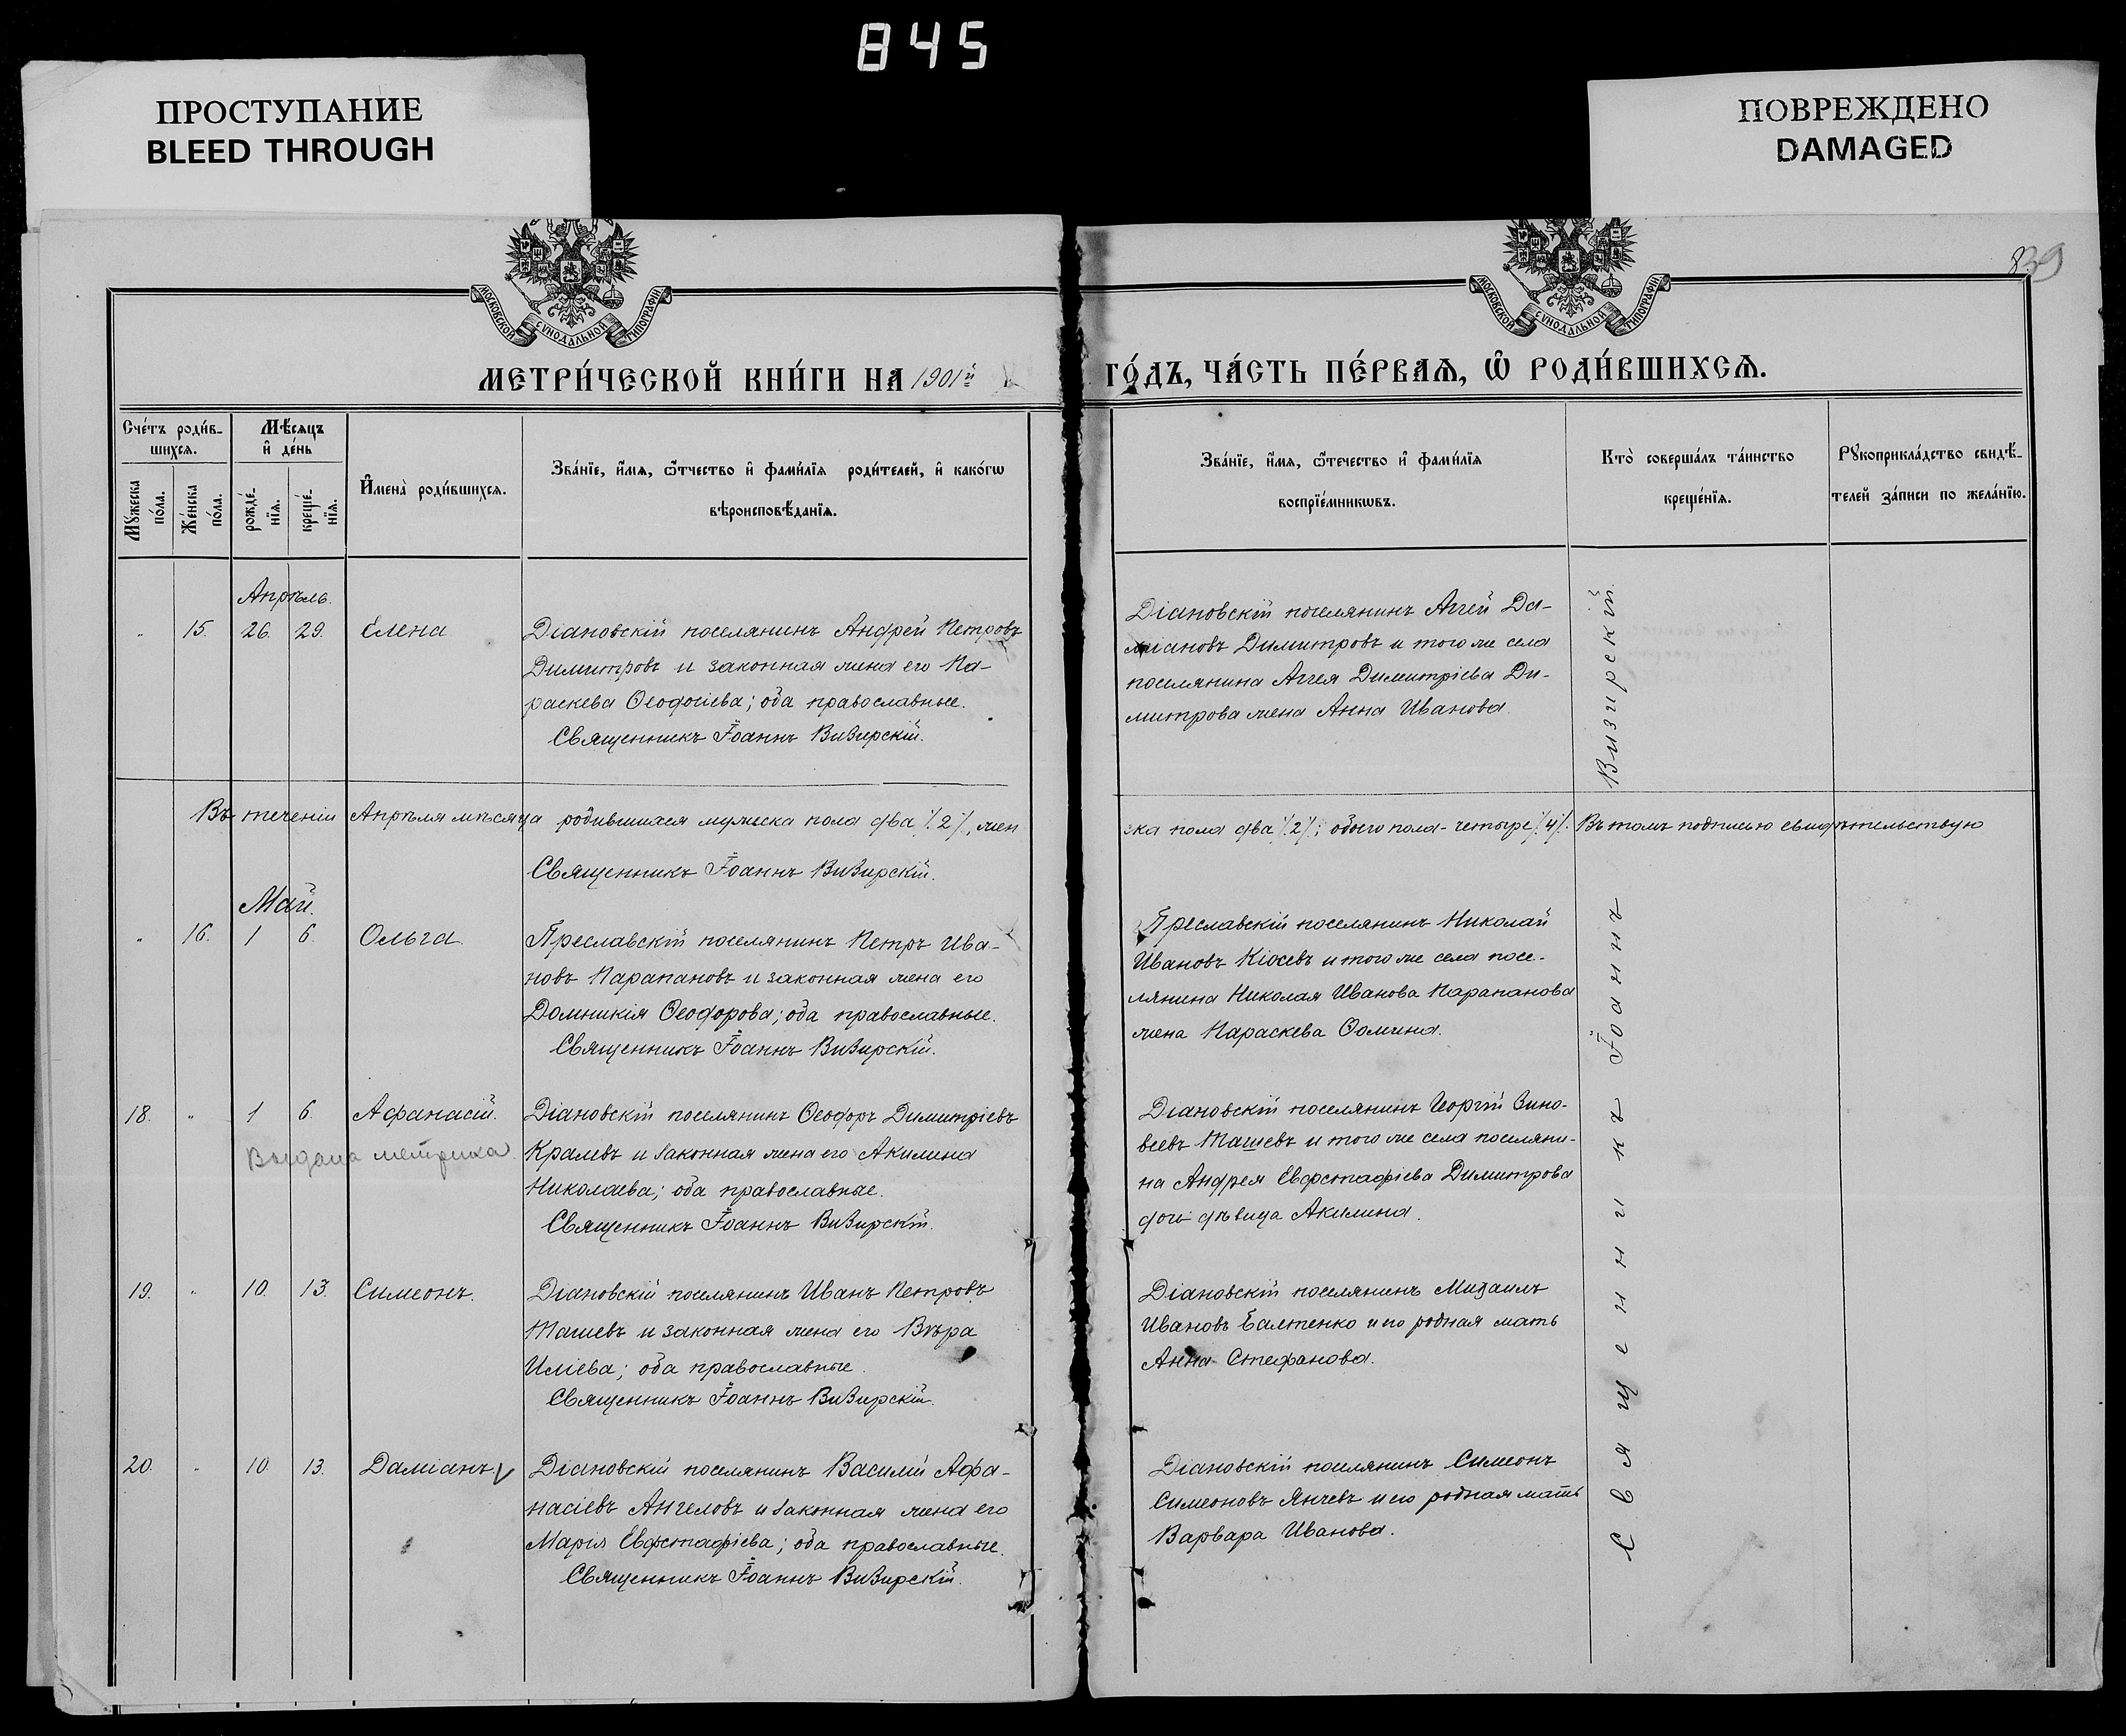 845
ПРОСТУПАНИЕ
BLEED THROUGH
ПОВРЕЖДЕНО
DAMAGED
839
МОСКОВСКОЙ СѴНОДАЛЬНОЙ ТИПОГРАФІИ
МОСКОВСКОЙ СѴНОДАЛЬНОЙ ТИПОГРАФІИ
МЕТРИ́ЧЕСКОЙ КНИ́ГИ НА 1901й
ГО́ДЪ, ЧА́СТЬ ПЕ́РВАѦ, Ѽ РОДИ́ВШИХСѦ.
Сче́тъ роди́в-
шихсѧ.
Мѣ́сѧцъ
и҆ де́нь
Мꙋ́жеска
по́ла.
Же́нска
по́ла.
рожде́-
нїѧ.
креще́-
нїѧ.
И҆мена̀ роди́вшихсѧ.
Зва́нїе, и҆́мѧ, ѻ҆́тчество и҆ фами́лїѧ роди́телей, и҆ како́гѡ
вѣроисповѣ́данїѧ.
Зва́нїе, и҆́мѧ, ѻ҆́течество и҆ фами́лїѧ
воспрїе́мникѡвъ.
Кто̀ соверша́лъ та́инство
креще́нїѧ.
Рꙋкоприкла́дство свидѣ́-
телей за́писи по жела́нїю.
Апрѣль.
„ 15. 26. 29. Елена
Діановскій поселянинъ Андрей Петровъ
Димитровъ и законная жена его Па-
раскева Ѳеодосіева; оба православные.
Священникъ Іоаннъ Визирскій.
Діановскій поселянинъ Аггей Да-
міановъ Димитровъ и того же села
поселянина Аггея Димитріева Ди-
митрова жена Анна Иванова.
Въ теченіи Апрѣля мѣсяца родившихся мужеска пола два /.2/., жен
ска пола два /.2/.; обоего пола - четыре /.4/. Въ томъ подписью свидѣтельствую
Священникъ Іоаннъ Визирскій.
Май.
„ 16. 1 6. Ольга
Преславскій поселянинъ Петръ Ива-
новъ Парапановъ и законная жена его
Домникія Ѳеодорова; оба православные.
Священникъ Іоаннъ Визирскій.
Преславскій поселянинъ Николай
Ивановъ Кіосевъ и того же села посе-
лянина Николая Иванова Парапанова
жена Параскева Ѳомина.
18. „ 1 6. Афанасій.
Выдана метрика
Діановскій поселянинъ Ѳеодоръ Димитріевъ
Кралевъ и законная жена его Акилина
Николаева; оба православные.
Священникъ Іоаннъ Визирскій.
Діановскій поселянинъ Георгій Зино-
веевъ Ташевъ и того же села поселяни-
на Андрея Евфстафіева Димитрова
дочь дѣвица Акилина.
19. „ 10. 13. Симеонъ.
Діановскій поселянинъ Иванъ Петровъ
Ташевъ и законная жена его Вѣра
Иліева; оба православные.
Священникъ Іоаннъ Визирскій.
Діановскій поселянинъ Михаилъ
Ивановъ Балтенко и его родная мать
Анна Стефанова.
20. „ 10. 13. Даміанъ.
Діановскій поселянинъ Василій Афа-
насіевъ Ангеловъ и законная жена его
Марія Евфстафіева; оба православные.
Священникъ Іоаннъ Визирскій.
Діановскій поселянинъ Симеонъ
Симеоновъ Янчевъ и его родная мать
Варвара Иванова.
Священникъ Іоаннъ Визирскій